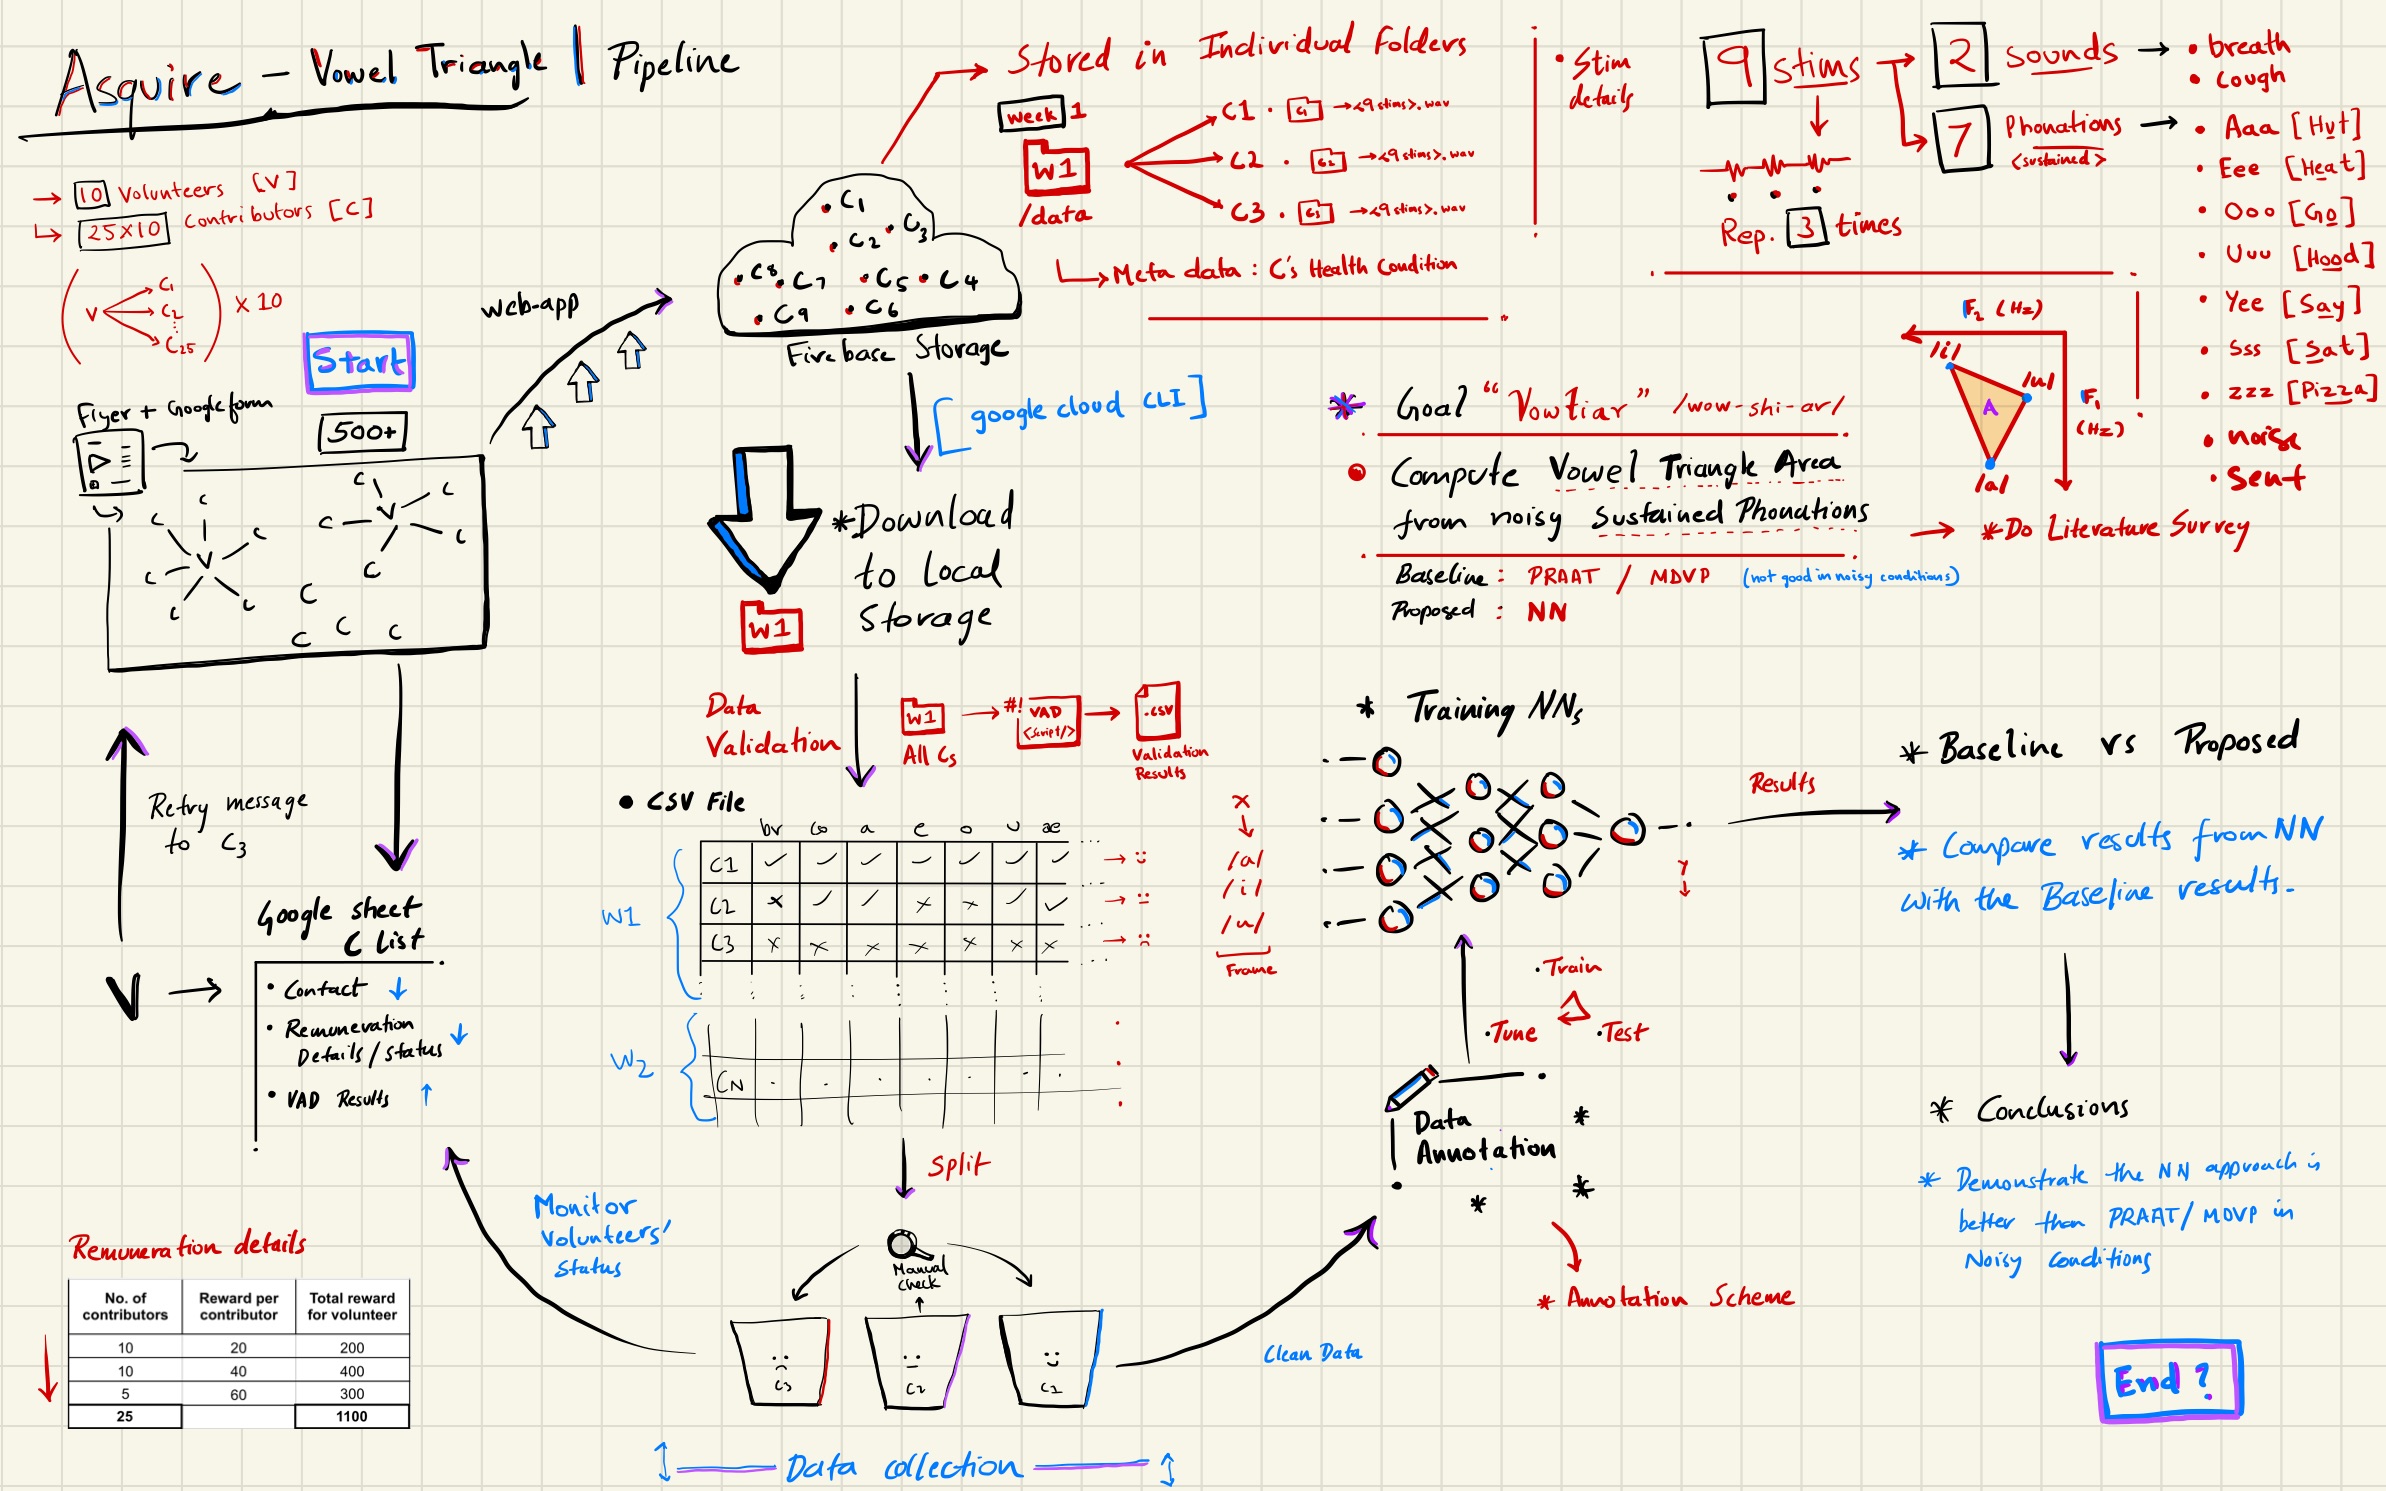 Asquire - Vowel Triangle | Pipeline
→ 10 Volunteers [V]
↳ 25x10 Contributors [C]
V
C1
C2
C25
x 10
Start
Flyer + Google form
500+
C C C C C C C V
C C C C C C V
C C C C
web-app
C1
C2 C3
C8 C7 C5 C4
C9 C6
Firebase Storage
Stored in Individual Folders
Week 1
W1
/data
C1 . C1 → <9 stims>.wav
C2 . C2 → <9 stims>.wav
C3 . C3 → <9 stims>.wav
↳ Meta data : C's Health Condition
• Stim
details
9 stims
2 sounds → • breath
• cough
7 Phonations →
<sustained>
• Aaa [Hut]
• Eee [Heat]
• Ooo [Go]
• Uuu [Hood]
• Yee [Say]
• Sss [Sat]
• zzz [Pizza]
• noise
• sent
Rep. 3 times
F2 (Hz)
/i/
/u/
A
F1
(Hz)
/a/
[google cloud CLI]
* Goal "Vowtiar" /wow-shi-ar/
• Compute Vowel Triangle Area
from noisy Sustained Phonations
→ * Do Literature Survey
Baseline : PRAAT / MDVP (not good in noisy conditions)
Proposed : NN
* Download
to Local
Storage
W1
Data
Validation
W1
All Cs
#! VAD
<script/>
.CSV
Validation
Results
• CSV File
br co a e o u ae
C1 ✓ ✓ ✓ ✓ ✓ ✓ ✓
C2 x ✓ ✓ x x ✓ ✓
C3 x x x x x x x
W1
W2
CN
x
/a/
/i/
/u/
Frame
* Training NNs
y
Results
* Baseline vs Proposed
* Compare results from NN
with the Baseline results.
Retry message
to C3
Google sheet
C List
V →
• Contact ↓
• Remuneration
Details/status ↓
• VAD Results ↑
Split
Manual
check
C3
C2
C1
Monitor
Volunteers'
Status
Clean Data
• Train
• Tune
• Test
Data
Annotation
* Annotation Scheme
* Conclusions
* Demonstrate the NN approach is
better than PRAAT/ MDVP in
Noisy Conditions
Remuneration details
No. of contributors Reward per contributor Total reward for volunteer
10 20 200
10 40 400
5 60 300
25 1100
Data collection
End ?